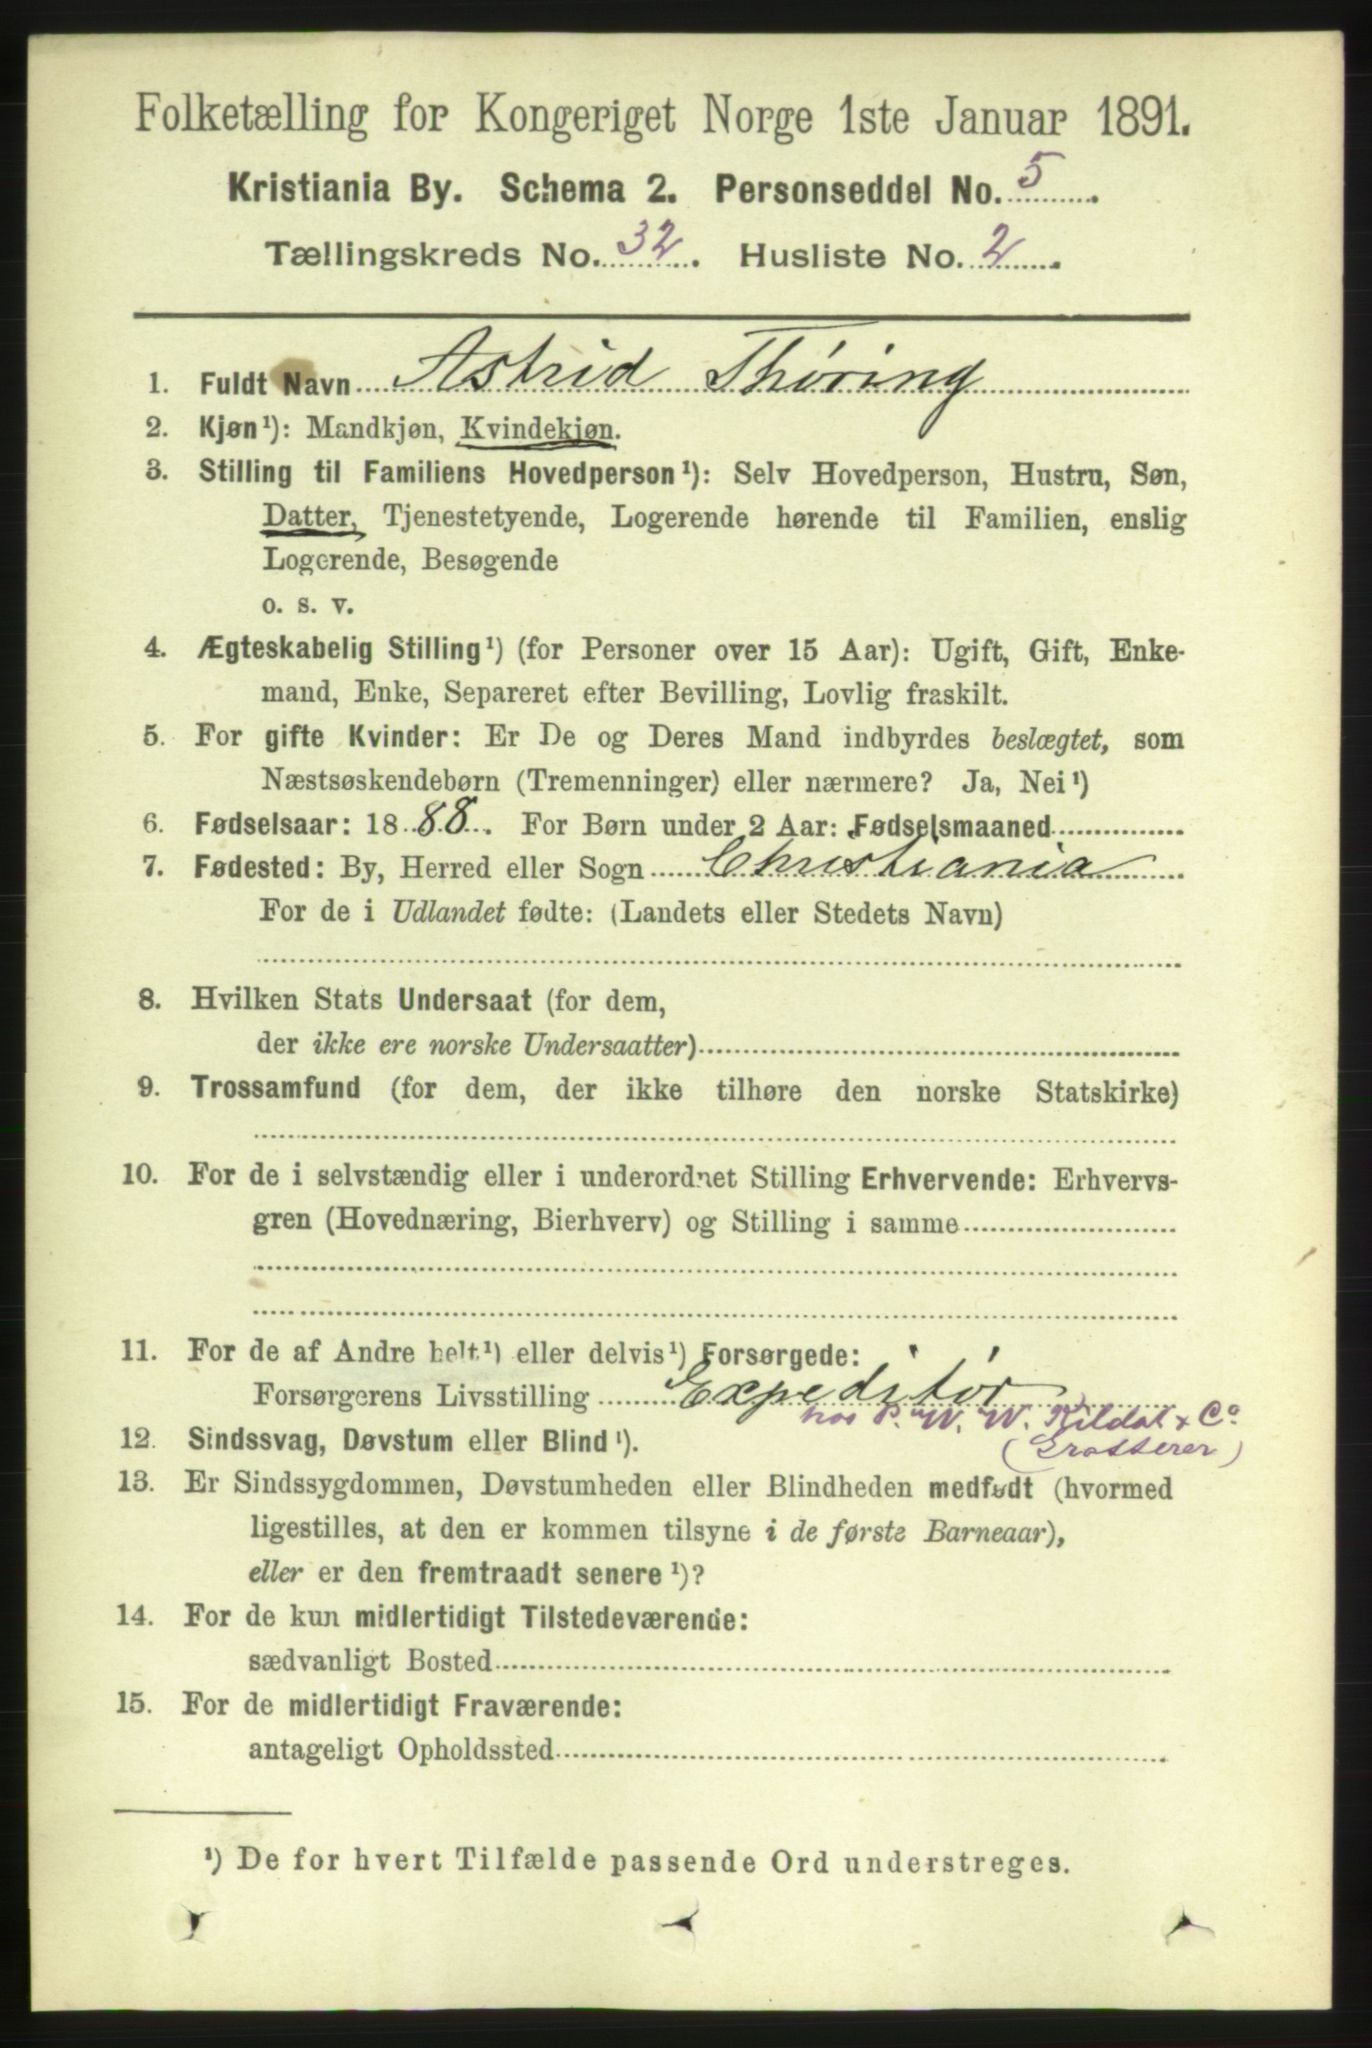 Folketælling for Kongeriget Norge 1ste Januar 1891.
Kristiania By. Schema 2. Personseddel No. 5.
Tællingskreds No. 32. Husliste No. 2.
1. Fuldt Navn Astrid Thøring
2. Kjøn¹): Mandkjøn, Kvindekjøn.
3. Stilling til Familiens Hovedperson¹): Selv Hovedperson, Hustru, Søn,
Datter, Tjenestetyende, Logerende hørende til Familien, enslig
Logerende, Besøgende
o. s. v.
4. Ægteskabelig Stilling¹) (for Personer over 15 Aar): Ugift, Gift, Enke-
mand, Enke, Separeret efter Bevilling, Lovlig fraskilt.
5. For gifte Kvinder: Er De og Deres Mand indbyrdes beslægtet, som
Næstsøskendebørn (Tremenninger) eller nærmere? Ja, Nei¹)
6. Fødselsaar: 1888. For Børn under 2 Aar: Fødselsmaaned
7. Fødested: By, Herred eller Sogn Christiania
For de i Udlandet fødte: (Landets eller Stedets Navn)
8. Hvilken Stats Undersaat (for dem,
der ikke ere norske Undersaatter)
9. Trossamfund (for dem, der ikke tilhøre den norske Statskirke)
10. For de i selvstændig eller i underordnet Stilling Erhvervende: Erhvervs-
gren (Hovednæring, Bierhverv) og Stilling i samme
11. For de af Andre helt¹) eller delvis¹) Forsørgede:
Forsørgerens Livsstilling Expeditør
hos P. W. W. Kildal & Co
12. Sindssvag, Døvstum eller Blind¹).
(Grosserer)
13. Er Sindssygdommen, Døvstumheden eller Blindheden medfødt (hvormed
ligestilles, at den er kommen tilsyne i de første Barneaar),
eller er den fremtraadt senere¹)?
14. For de kun midlertidigt Tilstedeværende:
sædvanligt Bosted
15. For de midlertidigt Fraværende:
antageligt Opholdssted
¹) De for hvert Tilfælde passende Ord understreges.